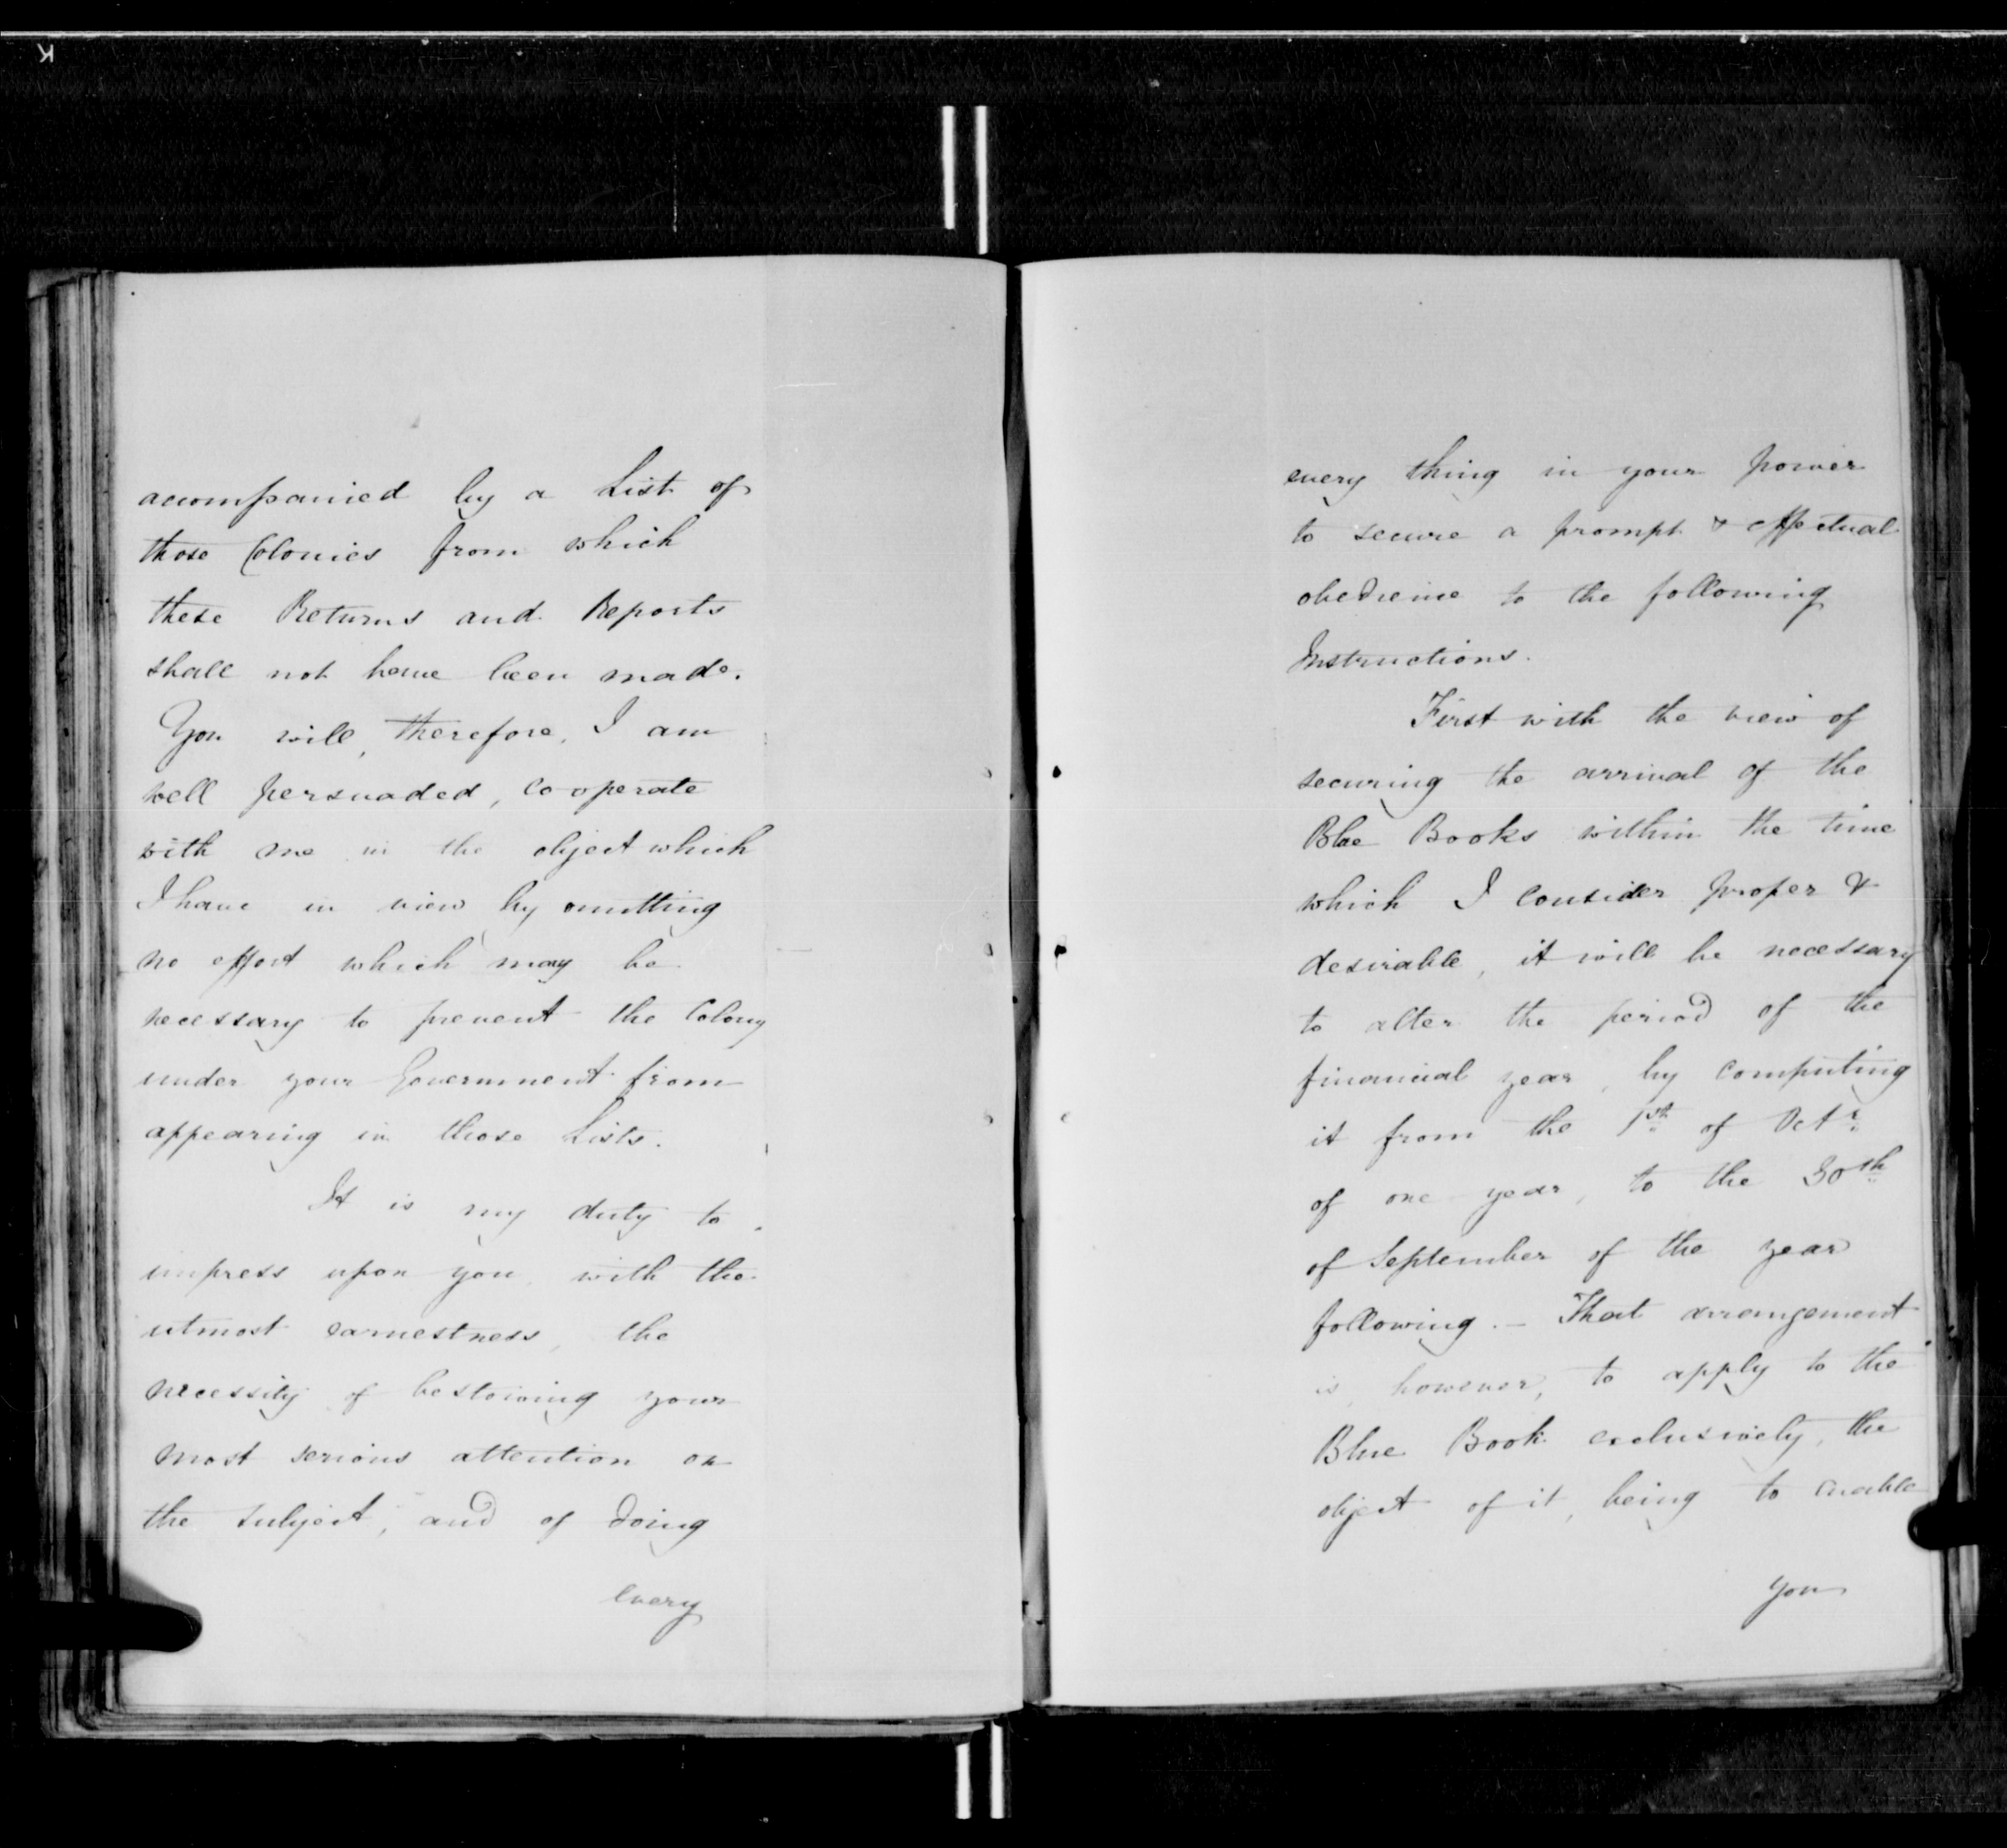 accompanied by a List of
those Colonies from which
these Returns and Reports
shall not have been made.
You will, therefore, I am
well persuaded, co-operate
with me in the object which
I have in view by omitting
no effort which may be
necessary to prevent the Colony
under your Government from
appearing in those Lists.
It is my duty to
impress upon you, with the
utmost earnestness, the
necessity of bestowing your
most serious attention on
the subject, and of doing
every
every thing in your power
to secure a prompt & effectual
obedience to the following
Instructions.
First with the view of
securing the arrival of the
Blue Books within the time
which I consider proper &
desirable, it will be necessary
to alter the period of the
financial year, by computing
it from the 1st of Octr
of one year, to the 30th
of September of the year
following. — That arrangement
is, however, to apply to the
Blue Book exclusively, the
object of it, being to enable
you